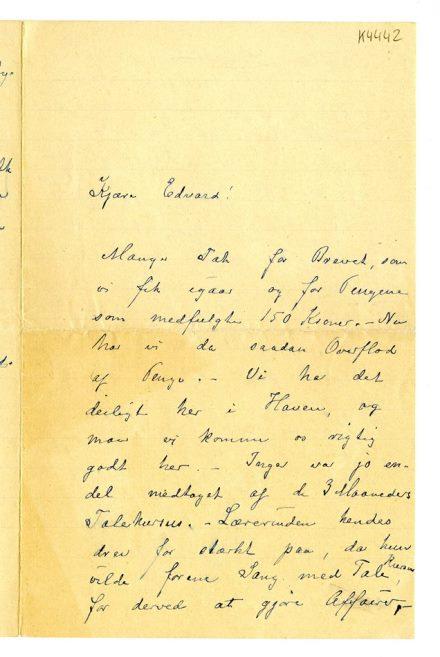 K4442
Kjære Edvard!
Mange Tak for Brevet, som
vi fik igaar og for Pengene
som medfulgte 150 Kroner. – Nu
har vi da saadan Overflod
af Penge. – Vi har det
deiligt her i Haven, og
maa vi komme os rigtig
godt her. – Inger var jo en-
del medtaget af de 3 Maaneders
Talekursus. – Lærerinden hendes
drev for stærkt paa, da hun
vilde forene Sang med Tale
for derved at gjøre Affaire, –